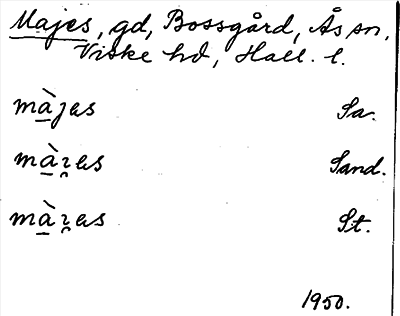 Majes, gd, Bossgård, Ås sn,
Viske hd, Hall. l.
mà̱jɐs Sa.
mà̱ɿ̯ɐs Sand.
mà̱ɿ̯ɐs St.
1950.